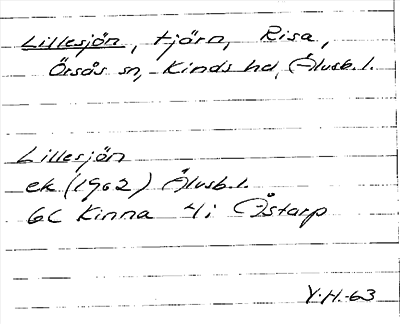 Lillesjön, tjärn, Risa,
Örsås sn, Kinds hd, Älvsb. l.
Lillesjön
ek (1962) Älvsb. l.
6C Kinna 4i Östarp
Y.H.-63